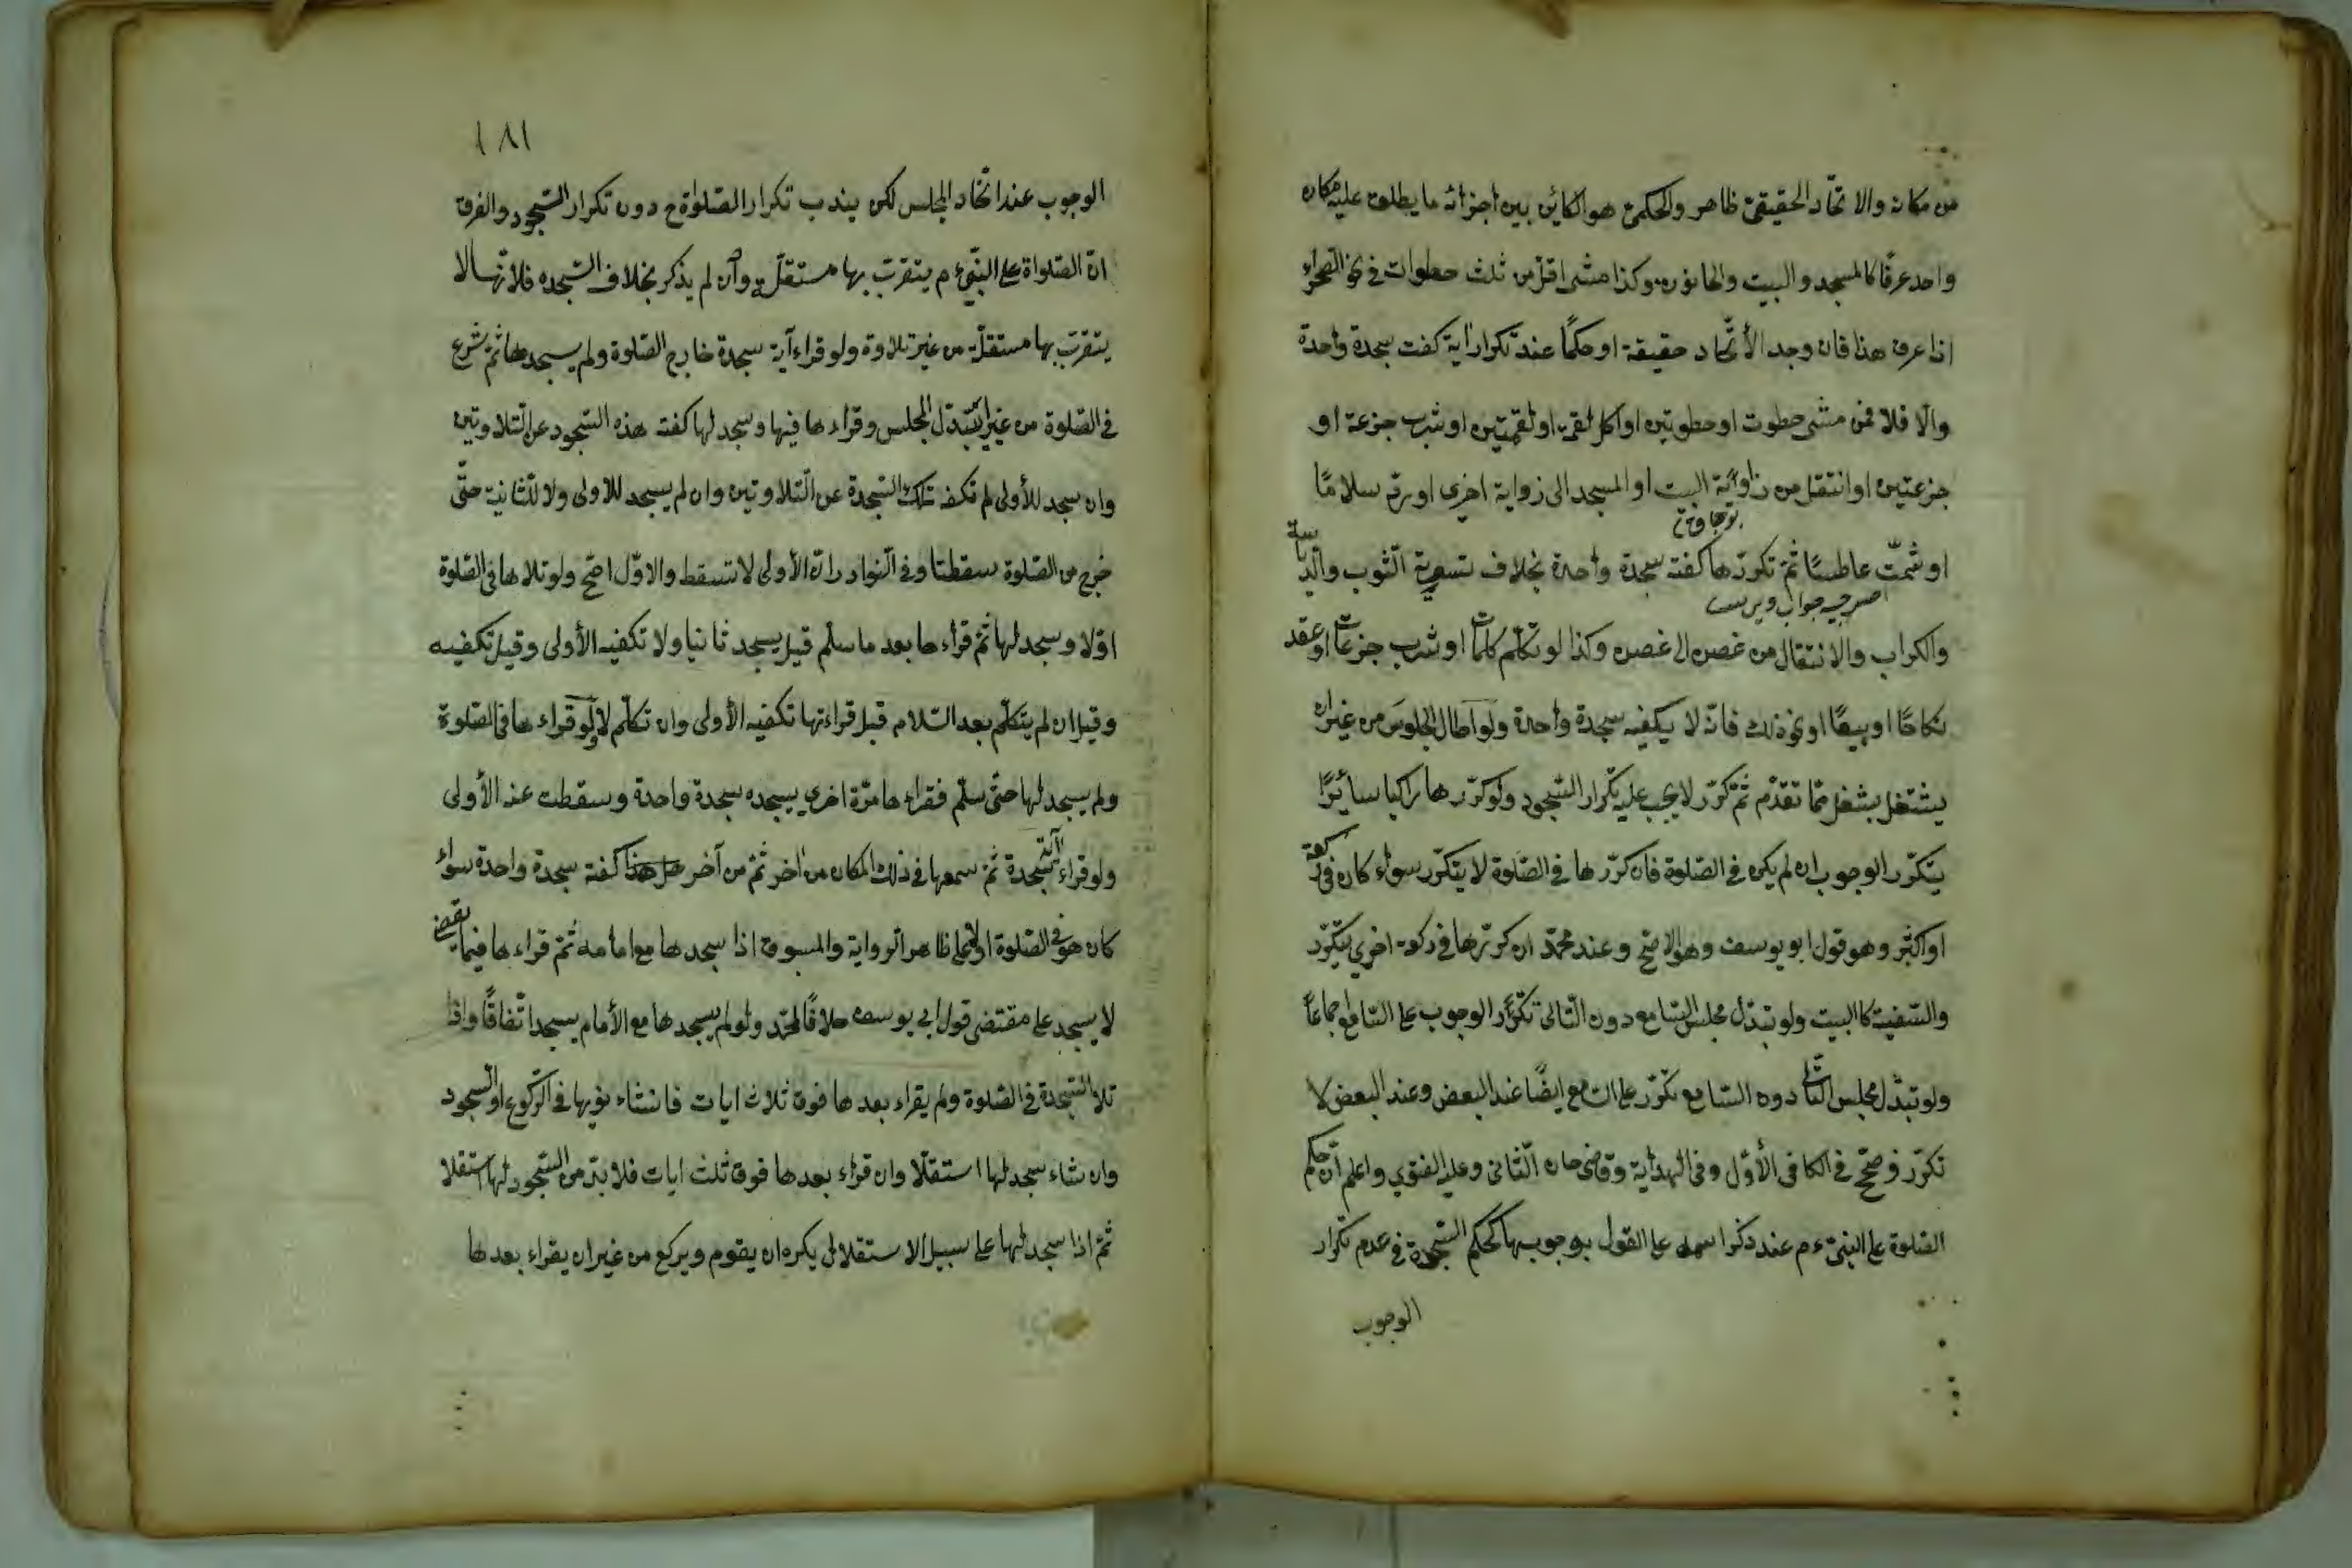 من مكان والاتحاد الحقيقي ظاهر والحكمي هو الكائن بين اجزائه ما يطلق عليه مكان
واحد عرفًا كالمسجد والبيت والحانوت وكذا مشى اقل من ثلث خطوات في نحو الصحراء
اذا عرف هذا فان وجد الأتّحاد حقيقة او حكمًا عند تكرار اية كفت سجدة واحدة
والّا فلا فمن مشى خطوت او خطوتين او اكل لقمة او لقمتين او شرب جزعة او
جزعتين او انتقل من زاوية البيت او المسجد الى زواية اخرى او ردّ سلامًا
او شمّت عاطسًا ثمّ تكررّها كفته سجدة واحدة بخلاف تسوية الثوب والدّياسة
والكراب والانتقال من غصن الى غصن وكذا لو تكلّم كلمات او شرب جزعات او عقد
نكاحًا او بيعًا او نحو ذلك فانّه لا يكفيه سجدة واحدة ولو اطال الجلوس من غير ان
يشتغل بشغل ممّا تقدّم ثمّ كرّر لا يجب عليه تكرار السّجود ولو كرّرها راكبا سائرًا
يتكرّر الوجوب ان لم يكن في الصّلوة فان كرّرها في الصّلوة لا يتكرّر سواء كان في ركعة
او اكثر وهو قول ابو يوسف وهو الاصحّ وعند محمّد ان كرّرها في ركعة اخرى يتكرّر
والسّفينة كالبيت ولو تبدّل مجلس السّامع دون التّالى تكرّر الوجوب على السّامع اجماعًا
ولو تبدّل مجلس التّالى دون السّامع تكرّر على السّامع ايضًا عند البعض وعند البعض لا
تكرّر وصحّح في الكافى الأوّل وفى الهداية وقاضى خان الثّانى وعليه الفتوي واعلم انّ حكم
الصّلوة على النبىّ ءم عند ذكر اسمه على القول بوجوبها كحكم السّجدة في عدم تكرار
الوجوب
١٨١
الوجوب عند اتّحاد المجلس لكن يندب تكرار الصّلواة ح دون تكرار السّجود والفرق
انّ الصّلواة على النبىّ ءم يتقرّب بها مستقلّة وان لم يذكر بخلاف السّجده فلانّها لا
يتقرّب بها مستقلّة من غير تلاوة ولو قراء آية سجدة خارج الصّلوة ولم يسجدها ثمّ شرع
في الصّلوة من غير تبدّل المجلس وقراءها فيها وسجد لها كفته هذه السّجود عن التّلاوتين
وان سجد للأولى لم تكفه تلك السّجدة عن التّلاوتين وان لم يسجد للاولى ولا للثّانية حتّى
خرج من الصّلوة سقطتا وفى النّوادر انّ الأولى لا تسقط والاوّل اصّح ولو تلاها فى الصّلوة
اوّلا وسجد لها ثمّ قراءها بعد ما سلّم قيل يسجد ثانيا ولا تكفيه الأولى وقيل تكفيه
وقيل ان لم يتكلّم بعد السّلام قبل قراءتها تكفيه الأولى وان تكلّم لا ولو قراءها فى الصّلوة
ولم يسجد لها حتّى سلّم فقراءها مرّة اخرى يسجده سجدة واحدة وسقطت عنه الأولى
ولو قراء آية سّجدة ثمّ سمعها في ذلك المكان من آخر ثمّ من آخر كفته سجدة واحدة سواء
كان هو في الصّلوة اولا على ظاهر الرواية والمسبوق اذا سجدها مع امامه ثمّ قراءها فيما يقضى
لا يسجد على مقتضى قول ابى يوسف خلافًا لمحمّد ولو لم يسجدها مع الأمام يسجد اتّفاقًا واذا
تلا السّجدة في الصّلوة ولم يقراء بعدها فوق ثلاث ايات فانشاء نويها في الرّكوع او السّجود
وان شاء سجد لها استقلّالا وان قراء بعدها فوق ثلث ايات فلا بدّ من السّجود لها استقلا
ثمّ اذا سجد لها على سبيل الاستقلال يكره ان يقوم ويركع من غير ان يقراء بعدها